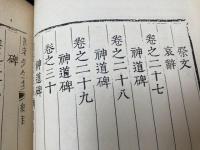 祭文
哀辭
卷之二十七
神道碑
卷之二十八
神道碑
卷之二十九
神道碑
卷之三十
神道碑